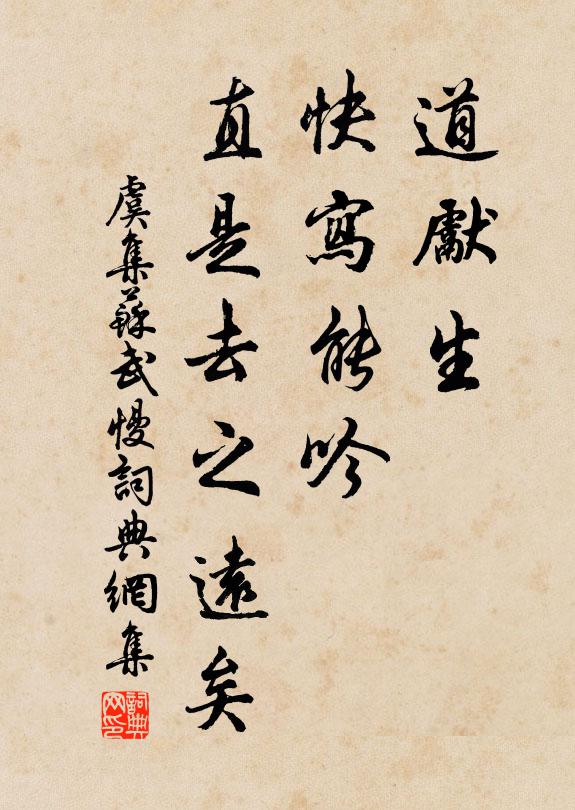 道獻生
快寫能吟
直是去之遠矣
虞集蘇武慢詞典網集
詞典网印